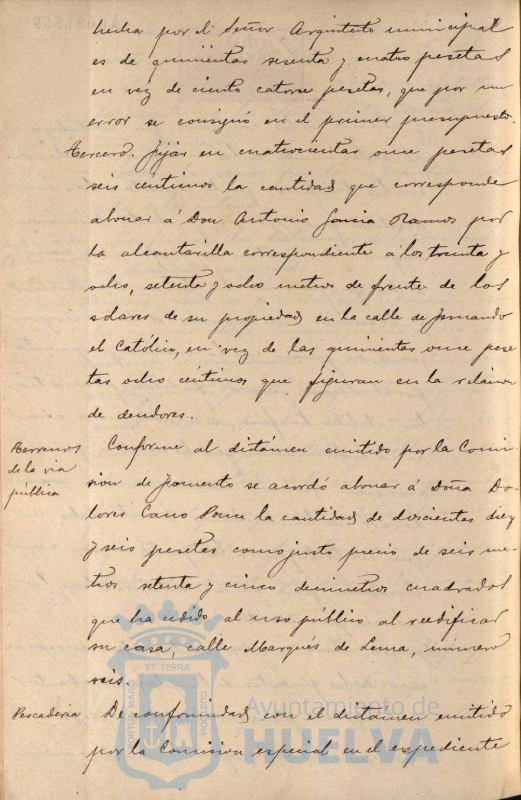 hecha por el Señor Arquitecto municipal
es de quinientas sesenta y cuatro pesetas
en vez de ciento catorce pesetas, que por un
error se consignó en el primer presupuesto.
Tercero. Fijar en cuatrocientas once pesetas
seis céntimos la cantidad que corresponde
abonar á Don Antonio García Ramos por
la alcantarilla correspondiente á los treinta y
ocho, setenta y ocho metros de frente de los
solares de su propiedad en la calle de Fernando
el Católico, en vez de las quinientas once pese
tas ocho céntimos que figuran en la relación
de deudores.
Terrenos
de la via
pública
Conforme al dictámen emitido por la Comi
sión de Fomento se acordó abonar á Doña Do
lores Cano Ponce la cantidad de doscientas diez
y seis pesetas como justo precio de seis me
tros setenta y cinco decimetros cuadrados
que ha cedido al uso público al reedificar
su casa, calle Marqués de Lema, número
seis.
Pescaderia
De conformidad con el dictámen emitido
por la Comisión especial en el expediente
PORTUS MARIS
ET TERRÆ
CUSTODIA
Ayuntamiento de
HUELVA